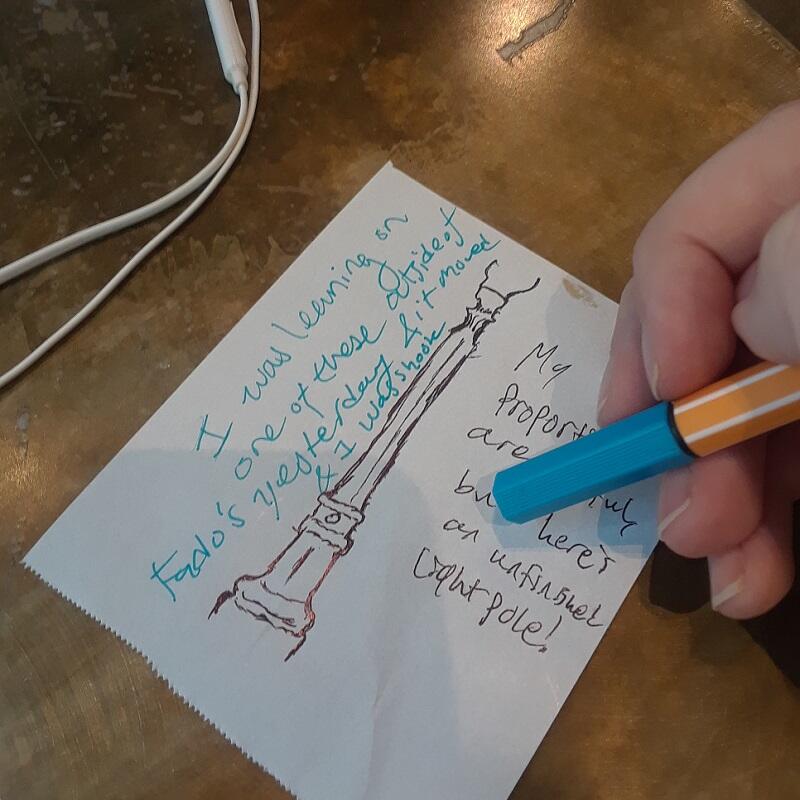 I was leaning on
one of these outside of
Fado's yesterday & it moved
& I was shook
My
are
here's
an unfinished
light pole!